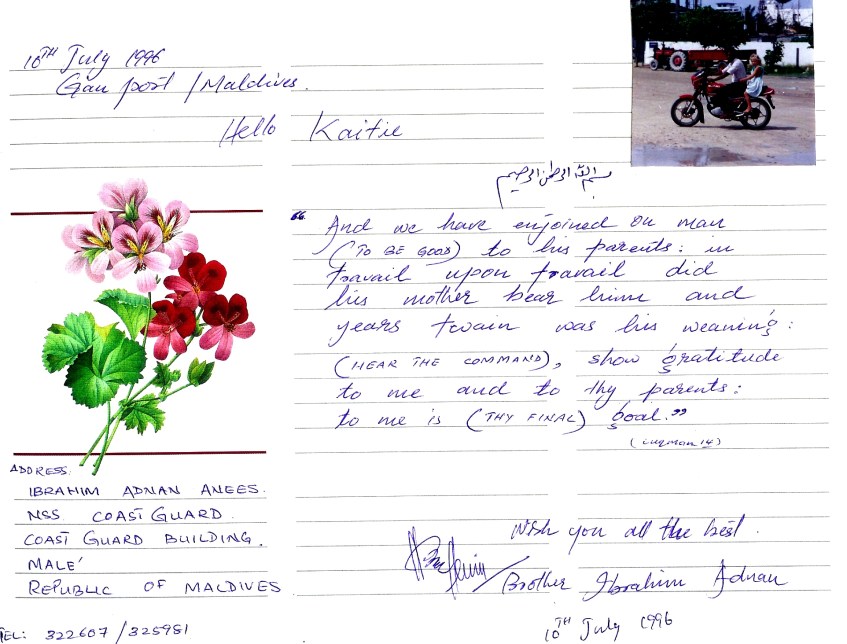 10TH July 1996
Gan port / Maldives.
Hello Kaitie
بسم الله الرحمن الرحيم
" And we have enjoined on man
(TO BE GOOD) to his parents: in
travail upon travail did
his mother bear him and
years twain was his weaning:
(HEAR THE COMMAND), show gratitude
to me and to thy parents:
to me is (THY FINAL) goal."
(Luqman 14)
ADDRESS:
IBRAHIM ADNAN ANEES.
NSS COAST GUARD
COAST GUARD BUILDING.
MALE'
REPUBLIC OF MALDIVES
TEL: 322607 / 325981
Wish you all the best.
/ Brother Ibrahim Adnan
10TH July 1996